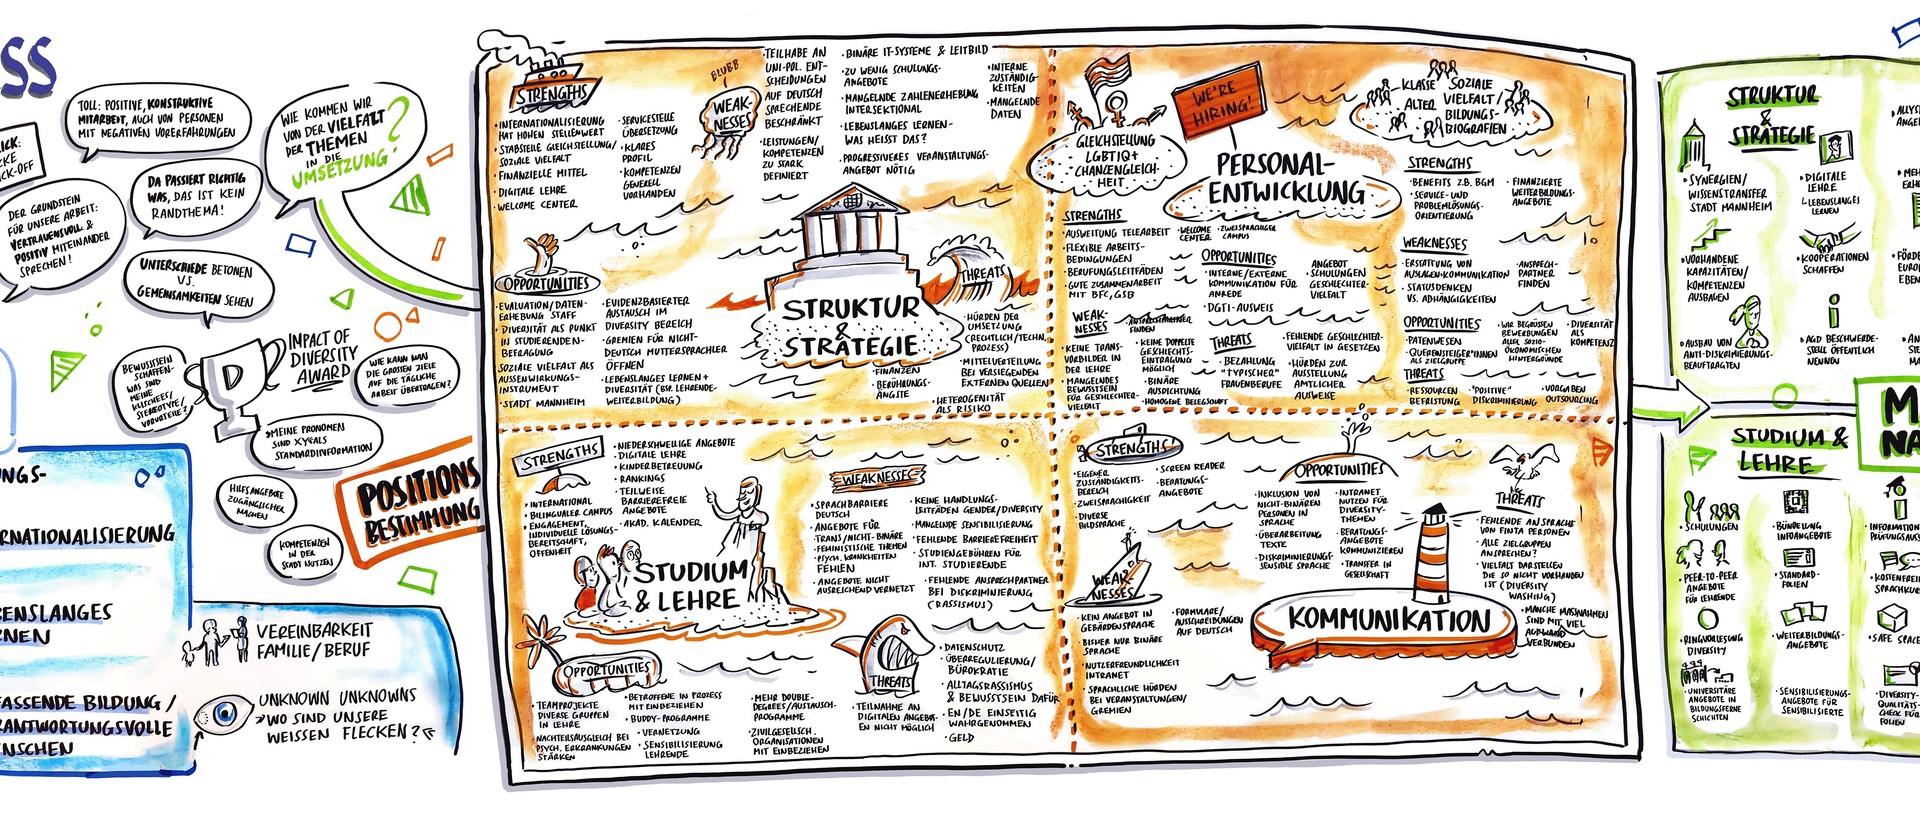 SS
TOLL: POSITIVE, KONSTRUKTIVE
MITARBEIT, AUCH VON PERSONEN
MIT NEGATIVEN VORERFAHRUNGEN
WIE KOMMEN WIR
VON DER VIELFALT
DER THEMEN
IN DIE
UMSETZUNG?
DA PASSIERT RICHTIG
WAS, DAS IST KEIN
RANDTHEMA!
DER GRUNDSTEIN
FÜR UNSERE ARBEIT:
VERTRAUENSVOLL &
POSITIV MITEINANDER
SPRECHEN!
UNTERSCHIEDE BETONEN
VS.
GEMEINSAMKEITEN SEHEN
BEWUSSTSEIN
SCHAFFEN-
WAS SIND
MEINE
KLISCHEES/
STEREOTYPE/
VORURTEILE?
D
IMPACT OF
DIVERSITY
AWARD
WIE KANN MAN
DIE GROSSEN ZIELE
AUF DIE TÄGLICHE
ARBEIT ÜBERTRAGEN?
"MEINE PRONOMEN
SIND XY" ALS
STANDARDINFORMATION
HILFSANGEBOTE
ZUGÄNGLICHER
MACHEN
KOMPETENZEN
IN DER
STADT NUTZEN
POSITIONS
BESTIMMUNG
NGS-
RNATIONALISIERUNG
BENSLANGES
RNEN
FASSENDE BILDUNG/
RANTWORTUNGSVOLLE
NSCHEN
VEREINBARKEIT
FAMILIE/BERUF
UNKNOWN UNKNOWNS
»WO SIND UNSERE
WEISSEN FLECKEN?«
STRENGTHS
·INTERNATIONALISIERUNG
HAT HOHEN STELLENWERT
·STABSTELLE GLEICHSTELLUNG/
SOZIALE VIELFALT
·FINANZIELLE MITTEL
·DIGITALE LEHRE
·WELCOME CENTER
·SERVICESTELLE
ÜBERSETZUNG
·KLARES
PROFIL
·KOMPETENZEN
GENERELL
VORHANDEN
BLUBB
WEAK-
NESSES
·TEILHABE AN
UNI-POL. ENT-
SCHEIDUNGEN
AUF DEUTSCH
SPRECHENDE
BESCHRÄNKT
·LEISTUNGEN/
KOMPETENZEN
ZU STARK
DEFINIERT
·BINÄRE IT-SYSTEME & LEITBILD
·ZU WENIG SCHULUNGS-
ANGEBOTE
·MANGELNDE ZAHLENERHEBUNG
INTERSEKTIONAL
·LEBENSLANGES LERNEN-
WAS HEISST DAS?
·PROGRESSIVERES VERANSTALTUNGS-
ANGEBOT NÖTIG
·INTERNE
ZUSTÄNDIG-
KEITEN
·MANGELNDE
DATEN
OPPORTUNITIES
·EVALUATION/DATEN-
ERHEBUNG STAFF
·DIVERSITÄT ALS PUNKT
IN STUDIERENDEN-
BEFRAGUNG
SOZIALE VIELFALT ALS
AUSSENWIRKUNGS-
INSTRUMENT
·STADT MANNHEIM
·EVIDENZBASIERTER
AUSTAUSCH IM
DIVERSITY BEREICH
·GREMIEN FÜR NICHT-
DEUTSCH MUTTERSPRACHLER
ÖFFNEN
·LEBENSLANGES LERNEN +
DIVERSITÄT (BSP. LEHRENDE-
WEITERBILDUNG)
STRUKTUR
&
STRATEGIE
THREATS
·HÜRDEN DER
UMSETZUNG
(RECHTLICH/TECHN.
PROZESS)
·MITTELVERTEILUNG
BEI VERSIEGENDEN
EXTERNEN QUELLEN
·FINANZEN
·BERÜHRUNGS-
ÄNGSTE
·HETEROGENITÄT
ALS RISIKO
GLEICHSTELLUNG
LGBTIQ+
CHANCENGLEICH-
HEIT
WE'RE
HIRING!
PERSONAL-
ENTWICKLUNG
KLASSE SOZIALE
VIELFALT/
ALTER BILDUNGS-
BIOGRAFIEN
STRENGTHS
·AUSWEITUNG TELEARBEIT
·FLEXIBLE ARBEITS-
BEDINGUNGEN
·BERUFUNGSLEITFÄDEN
·GUTE ZUSAMMENARBEIT
MIT BFC, GSB
·WELCOME
CENTER
·ZWEISPRACHIGER
CAMPUS
OPPORTUNITIES
·INTERNE/EXTERNE
KOMMUNIKATION FÜR
ANREDE
·DGTI-AUSWEIS
ANGEBOT
·SCHULUNGEN
GESCHLECHTER-
VIELFALT
WEAK-
NESSES
·KEINE TRANS-
VORBILDER IN
DER LEHRE
·MANGELNDES
BEWUSSTSEIN
FÜR GESCHLECHTER-
VIELFALT
FINDEN
·KEINE DOPPELTE
GESCHLECHTS-
EINTRAGUNG
MÖGLICH
·BINÄRE
AUSRICHTUNG
·HOMOGENE BELEGSCHAFT
THREATS
·BEZAHLUNG
"TYPISCHER"
FRAUENBERUFE
·FEHLENDE GESCHLECHTER-
VIELFALT IN GESETZEN
·HÜRDEN ZUR
AUSSTELLUNG
AMTLICHER
AUSWEISE
STRENGTHS
·BENEFITS Z.B. BGM
·SERVICE- UND
PROBLEMLÖSUNGS-
ORIENTIERUNG
·FINANZIERTE
WEITERBILDUNGS-
ANGEBOTE
WEAKNESSES
·ERSTATTUNG VON
AUSLAGEN-KOMMUNIKATION
·STATUSDENKEN
VS. ABHÄNGIGKEITEN
·ANSPRECH-
PARTNER
FINDEN
OPPORTUNITIES
·PATENWESEN
·QUEREINSTEIGER*INNEN
ALS ZIELGRUPPE
·WIR BEGRÜSSEN
BEWERBUNGEN
ALLER SOZIO-
ÖKONOMISCHEN
HINTERGRÜNDE
·DIVERSITÄT
ALS
KOMPETENZ
THREATS
·RESSOURCEN
BEFRISTUNG
·"POSITIVE"
DISKRIMINIERUNG
·VORGABEN
OUTSOURCING
STRENGTHS
·INTERNATIONAL
·BILINGUALER CAMPUS
·ENGAGEMENT,
INDIVIDUELLE LÖSUNGS-
BEREITSCHAFT,
OFFENHEIT
·NIEDERSCHWELLIGE ANGEBOTE
·DIGITALE LEHRE
·KINDERBETREUUNG
·RANKINGS
·TEILWEISE
BARRIEREFREIE
ANGEBOTE
·AKAD. KALENDER
STUDIUM
& LEHRE
WEAKNESSES
·SPRACHBARRIERE
DEUTSCH
·ANGEBOTE FÜR
TRANS/NICHT-BINÄRE
·FEMINISTISCHE THEMEN
·PSYCH. KRANKHEITEN
FEHLEN
·ANGEBOTE NICHT
AUSREICHEND VERNETZT
·KEINE HANDLUNGS-
LEITFÄDEN GENDER/DIVERSITY
·MANGELNDE SENSIBILISIERUNG
·FEHLENDE BARRIEREFREIHEIT
·STUDIENGEBÜHREN FÜR
INT. STUDIERENDE
·FEHLENDE ANSPRECHPARTNER
BEI DISKRIMINIERUNG
(RASSISMUS)
OPPORTUNITIES
·TEAMPROJEKTE
DIVERSE GRUPPEN
IN LEHRE
·NACHTEILSAUSGLEICH BEI
PSYCH. ERKRANKUNGEN
STÄRKEN
·BETROFFENE IN PROZESS
MIT EINBEZIEHEN
·BUDDY-PROGRAMME
·VERNETZUNG
·SENSIBILISIERUNG
LEHRENDE
·MEHR DOUBLE-
DEGREES/AUSTAUSCH-
PROGRAMME
·ZIVILGESELLSCH.
ORGANISATIONEN
MIT EINBEZIEHEN
THREATS
·TEILNAHME AN
DIGITALEN ANGEBOT-
EN NICHT MÖGLICH
·DATENSCHUTZ
·ÜBERREGULIERUNG/
BÜROKRATIE
·ALLTAGSRASSISMUS
& BEWUSSTSEIN DAFÜR
·EN/DE EINSEITIG
WAHRGENOMMEN
·GELD
STRENGTHS
·EIGENER
ZUSTÄNDIGKEITS-
BEREICH
·ZWEISPRACHIGKEIT
·DIVERSE
BILDSPRACHE
·SCREEN READER
·BERATUNGS-
ANGEBOTE
OPPORTUNITIES
·INKLUSION VON
NICHT-BINÄREN
PERSONEN IN
SPRACHE
·ÜBERARBEITUNG
TEXTE
·DISKRIMINIERUNGS-
SENSIBLE SPRACHE
·INTRANET
NUTZEN FÜR
DIVERSITY-
THEMEN
·BERATUNGS-
ANGEBOTE
KOMMUNIZIEREN
·TRANSFER IN
GESELLSCHAFT
THREATS
·FEHLENDE ANSPRACHE
VON FINTA PERSONEN
·ALLE ZIELGRUPPEN
ANSPRECHEN?
·VIELFALT DARSTELLEN
DIE SO NICHT VORHANDEN
IST (DIVERSITY
WASHING)
·MANCHE MASSNAHMEN
SIND MIT VIEL
AUFWAND
VERBUNDEN
WEAK-
NESSES
·KEIN ANGEBOT IN
GEBÄRDENSPRACHE
·BISHER NUR BINÄRE
SPRACHE
·NUTZERFREUNDLICHKEIT
INTRANET
·SPRACHLICHE HÜRDEN
BEI VERANSTALTUNGEN/
GREMIEN
·FORMULARE/
AUSSCHREIBUNGEN
AUF DEUTSCH
KOMMUNIKATION
STRUKTUR
&
STRATEGIE
·SYNERGIEN/
WISSENSTRANSFER
STADT MANNHEIM
·DIGITALE
LEHRE
↳LEBENSLANGES
LERNEN
·VORHANDENE
KAPAZITÄTEN/
KOMPETENZEN
AUSBAUEN
·KOOPERATIONEN
SCHAFFEN
·AUSBAU VON
ANTI-DISKRIMINIERUNGS-
BEAUFTRAGTEN
·AGD BESCHWERDE-
STELLE ÖFFENTLICH
NENNEN
STUDIUM &
LEHRE
·SCHULUNGEN
·BÜNDELUNG
INFOANGEBOTE
·PEER-TO-PEER
ANGEBOTE
FÜR LEHRENDE
·STANDARD-
FOLIEN
·RINGVORLESUNG
DIVERSITY
·WEITERBILDUNGS-
ANGEBOTE
·UNIVERSITÄRE
ANGEBOTE IN
BILDUNGSFERNE
SCHICHTEN
·SENSIBILISIERUNGS-
ANGEBOTE FÜR
SENSIBILISIERTE
M
NA
·SAFE SPACE
·DIVERSITY-
QUALITÄTS-
CHECK FÜR
FOLIEN